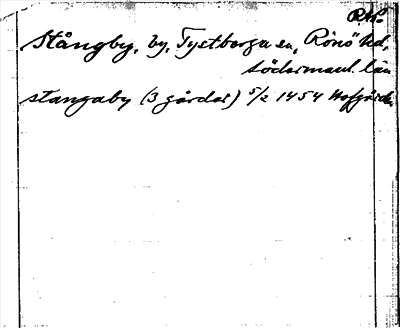 Stångby, by, Tystberga sn, Rönö hd,
Södermanl. län
stangaby (3 gårdar) 5/2 1454